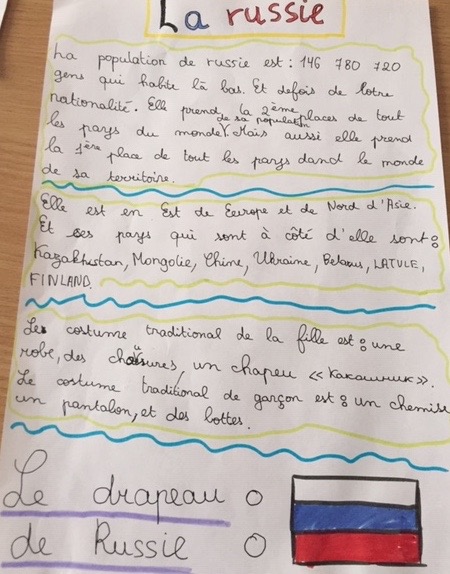 La russie
La population de russie est : 146 780 720
gens qui habite là bas. Et defois de lotre
nationalité. Elle prend la 2ème places de tout
de sa population
les pays du monde. Mais aussi elle prend
la 1ère place de tout les pays dand le monde
de sa territoire.
Elle est en Est de Europe et de Nord d'Asie.
Et ses pays qui sont à côté d'elle sont :
Kazakhistan, Mongolie, Chine, Ukraine, Belarus, LATVLE,
FINLAND.
Le costume traditional de la fille est : une
robe, des chausures, un chapeu « Какашник ».
Le costume traditional de garçon est : un chemise
un pantalon, et des bottes.
Le drapeau :
de Russie :